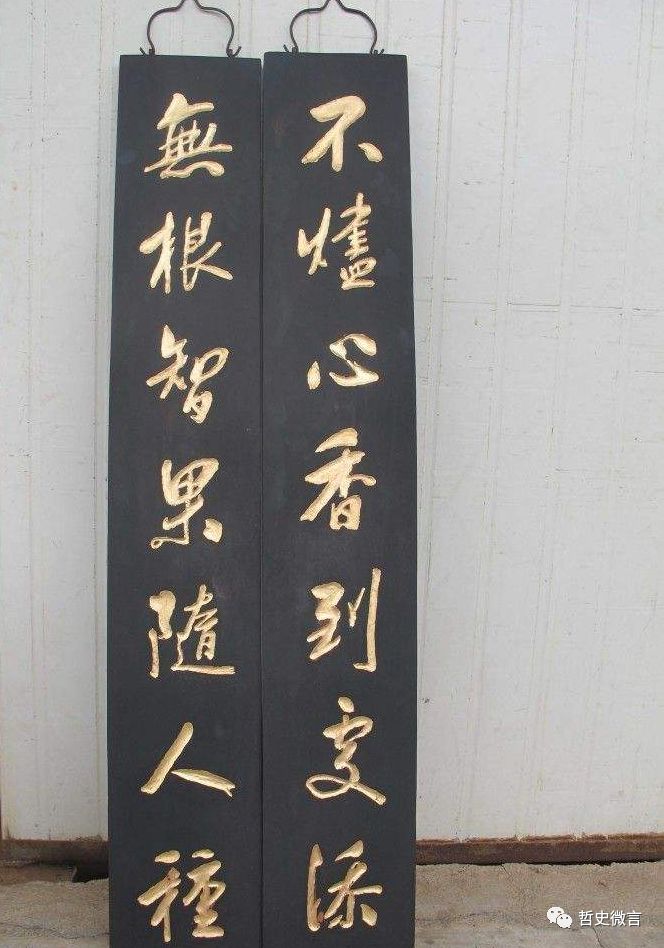 不燼心香到處添
無根智果隨人種
哲史微言